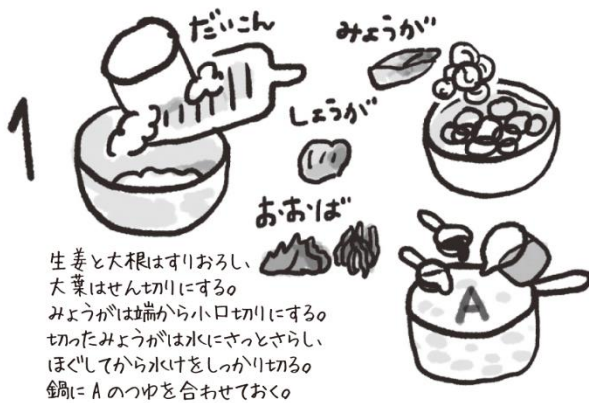 1
だいこん
みょうが
しょうが
おおば
A
生姜と大根はすりおろし、
大葉はせん切りにする。
みょうがは端から小口切りにする。
切ったみょうがは水にさっとさらし、
ほぐしてから水けをしっかり切る。
鍋にAのつゆを合わせておく。